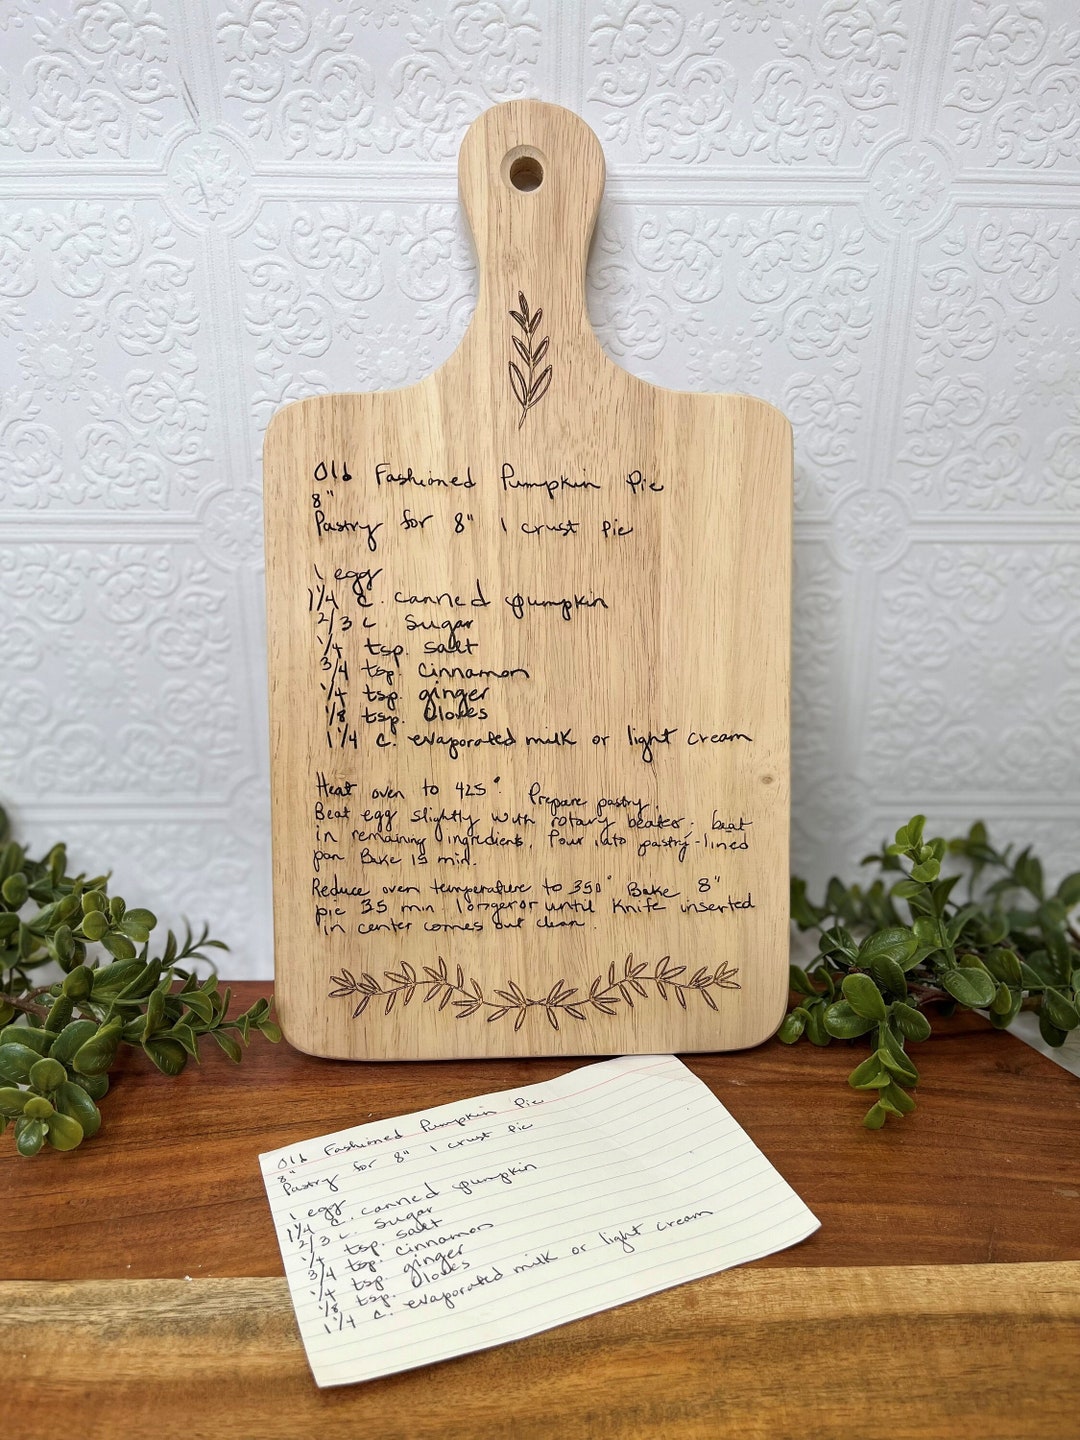 Old Fashioned Pumpkin Pie
8"
Pastry for 8" 1 crust Pie
1 egg
1 1/4 c. canned pumpkin
2/3 c sugar
1/4 tsp. salt
3/4 tsp. cinnamon
1/4 tsp. ginger
1/8 tsp. cloves
1 1/4 c. evaporated milk or light cream
Heat oven to 425°. Prepare pastry.
Beat egg slightly with rotary beater. beat
in remaining ingredients. Pour into pastry-lined
pan Bake 15 min.
Reduce oven temperature to 350° Bake 8"
pie 35 min longer or until knife inserted
in center comes out clean.
Old Fashioned Pumpkin Pie
8"
Pastry for 8" 1 crust Pie
1 egg
1 1/4 c. canned pumpkin
2/3 c. sugar
1/4 tsp. salt
3/4 tsp. cinnamon
1/4 tsp. ginger
1/8 tsp. cloves
1 1/4 c. evaporated milk or light cream